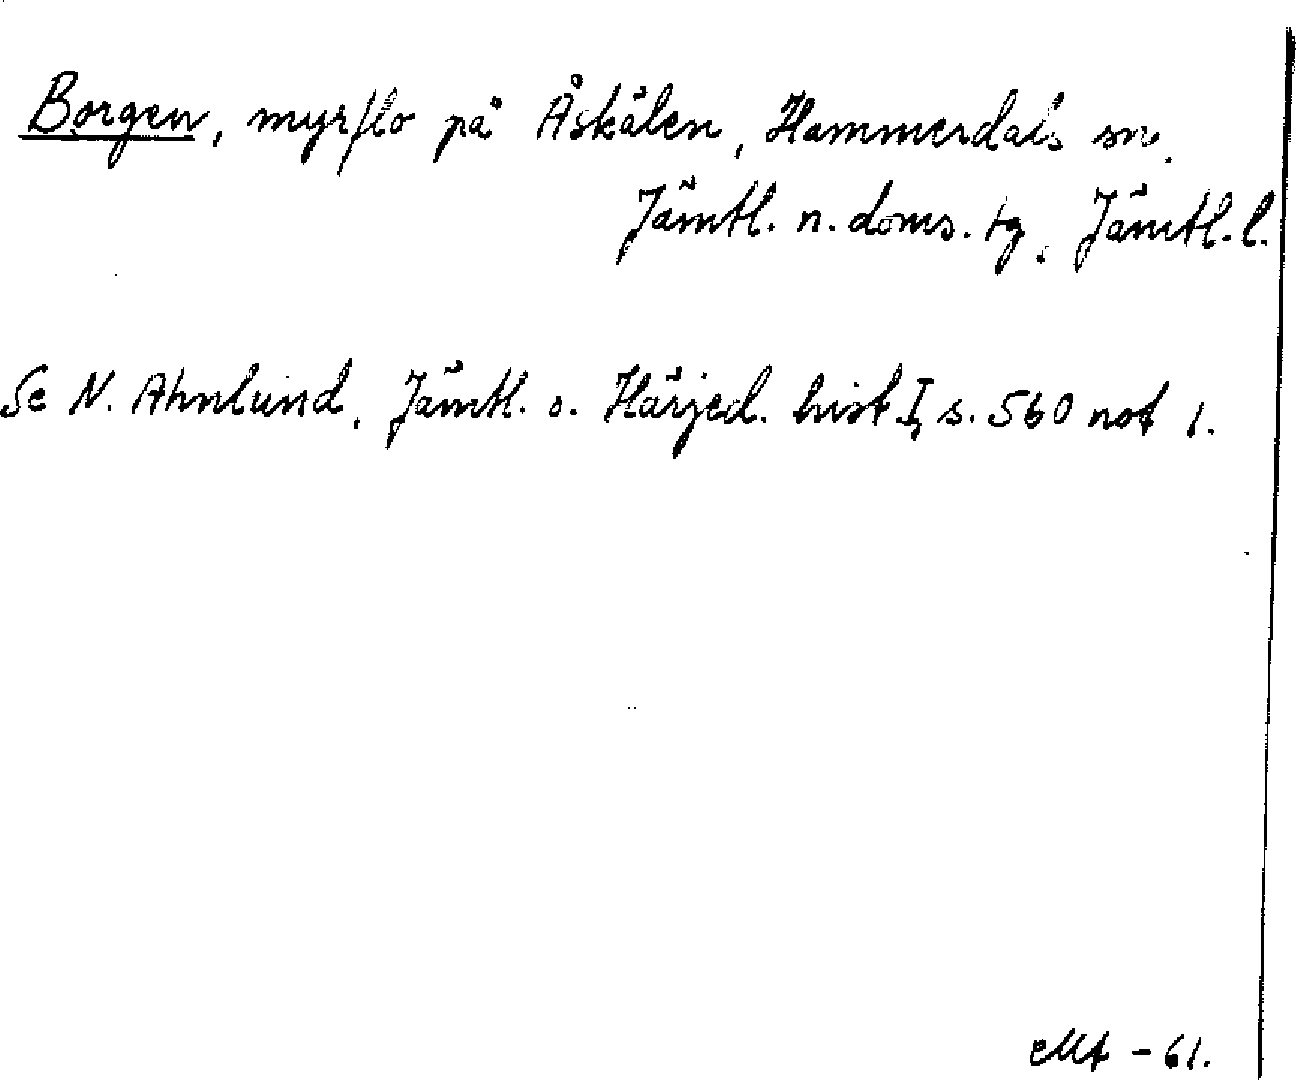 Borgen, myrflo på Åskälen, Hammerdals sn.
Jämtl. n. doms. tg, Jämtl. l.
Se N. Ahnlund, Jämtl. o. Härjed. hist I, s. 560 not 1.
-61.